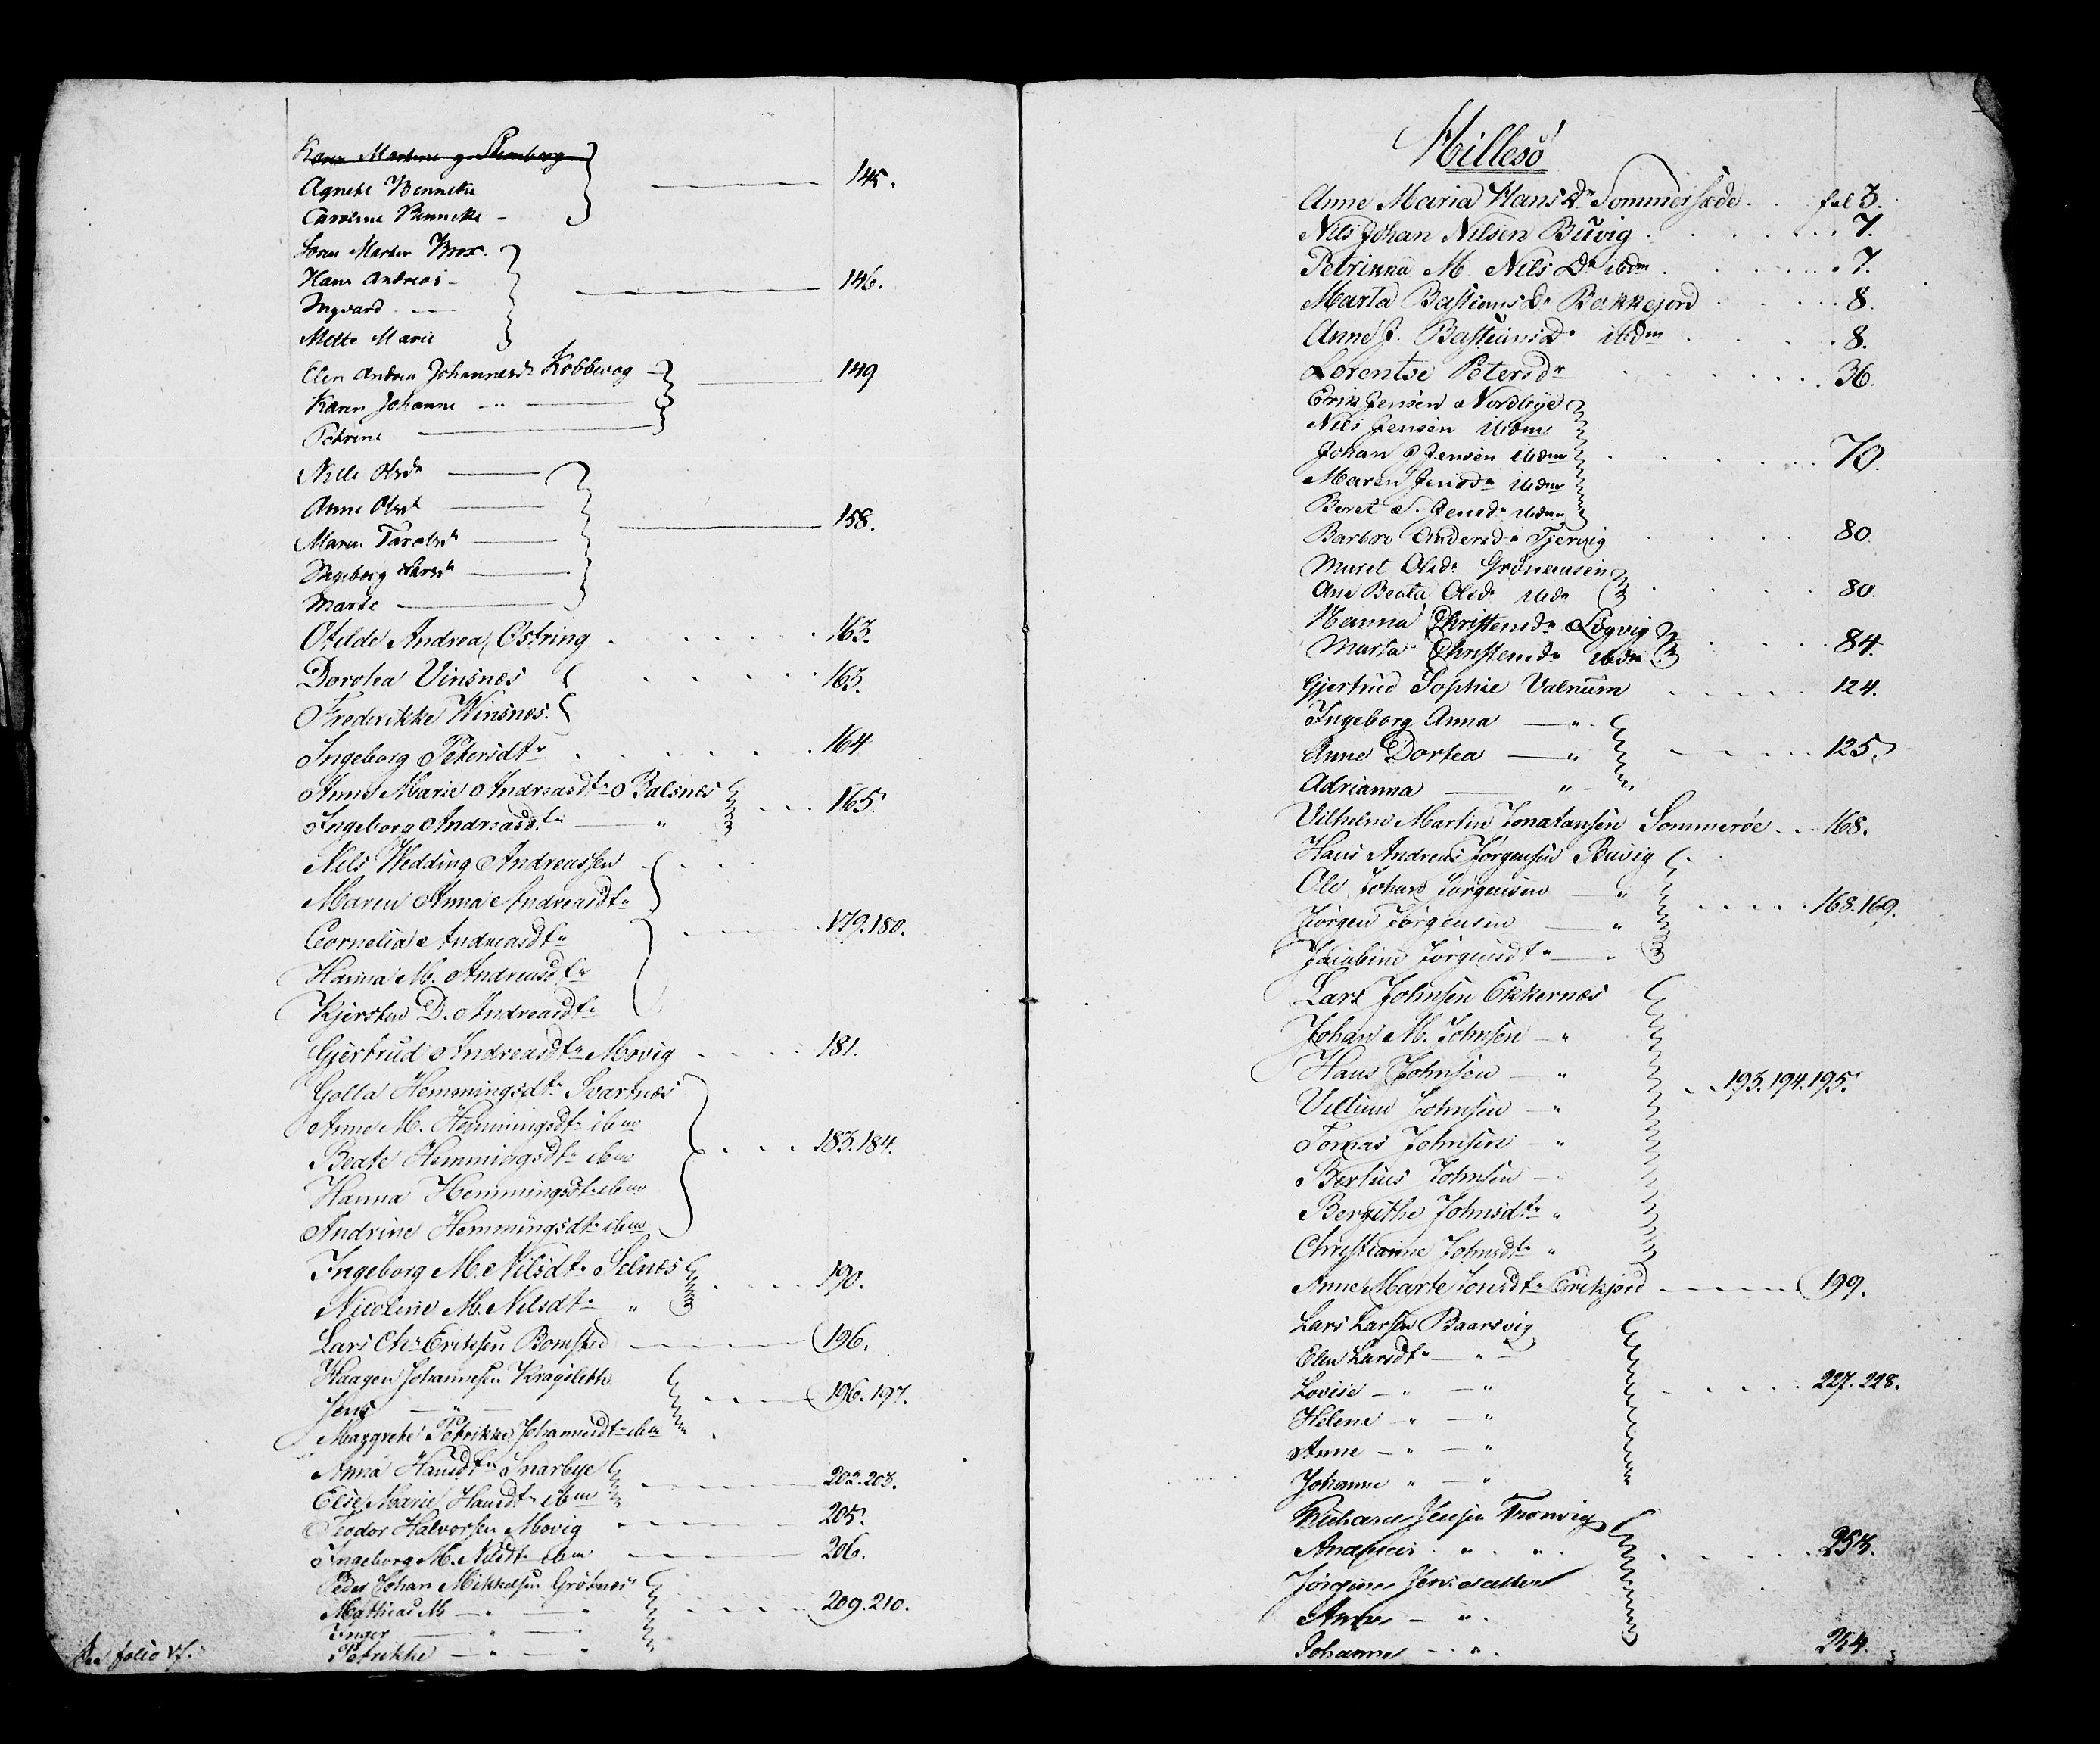 Karen Martine g. Stenberg
Agnete Wenneke 145.
Caroline Benneke -
Soren Morten Brox.
Hans Andreas - 146.
Ingvard - - -
Mette Marie
Elen Andrea Johannesdr Kobbevog 149
Karen Johanne - " -
Petrine
Nille Olsdr
Anne Olsdr
Maren Larsdr 158.
Ingeborg Larsdr
Marte
Otelde Andrea Østring . . . 163.
Dorotea Vinsnes . . . 163.
Frederikke Winsnes.
Ingeborg Petersdtr . . . 164
Anne Marie Andreasdtr Balsnes . . . 165.
Ingeborg Andreasdtr — "
Nils Wedding Andreassen
Maren Anna Andreasdtr
Cornelia Andreasdtr . . . 179.180.
Hanna M. Andreasdtr
Kjersten D. Andreasdtr
Gjertrud Andreasdtr Movig . . . 181.
Golla Hemmingsdtr Svartnæs
Anne M. Hemmingsdtr ibm
Beate Hemmingsdtr ibm . . . 183.184.
Hanna Hemmingsdtr ibm
Andrine Hemmingsdtr ibm
Ingeborg M. Nilsdtr Selnæs . . . 190.
Nicoline M. Nilsdtr "
Lars Chr Eriksen Bomsted 196.
Haagen Johannesen Krageleth
Jens — " — 196.197.
Margrethe Petrikke Johannesdtr ibm
Anna Hansdtr Snarbye 202.203.
Elise Marie Hansdtr ibm
Teodor Halvorsen Movig 205.
Ingeborg M. Nilsdtr ibm 206.
Peder Johan Mikkelsen Grøtnæs
Mathias M — " — " 209.210.
Inger — " — "
Petrikke — " — "
folio 17.
Hillesö
Anne Maria Hans Dr Sommersæde . . fol 3.
Nils Johan Nilsen Buvig . . . 7.
Petrinna M. Nils Dr ibdm . . . 7.
Marta Bastians Dr Bakkejord . . . 8.
Anne J. Bastians Dr ibdm . . . 8.
Lorentse Petersdr . . . 36.
Erik Jensen Nordbye
Nils Jensen ibdm
Johan P Jensen ibdm . . . 70.
Maren Jensdr ibdm
Beret S. Jensdr ibdm
Barbro Andersdr Tjervig . . . 80
Maret Olsdr Grönausen
Ane Beata Olsdr ibdm . . . 80.
Hanna Christensdr Løgvig
Marta Christensdr ibdm . . . 84.
Gjertrud Sophie Valnum . . . 124.
Ingeborg Anna — " .
Anne Dortea — " . . . 125.
Adrianna — " -
Vilhelm Martin Jonatansen Sommerøe . . 168.
Hans Andreas Jørgensen Buvig
Ole Johan Jørgensen — " . . . 168.169.
Jørgen Jørgensen — "
Jacobine Jørgensdtr — "
Lars Johnsen Ekkernæs
Johan M. Johnsen — "
Hans Johnsen — " . . 193.194.195.
Villum Johnsen — "
Tomas Johnsen — "
Bertius Johnsen —
Bergithe Johnsdtr "
Christianne Johnsdtr "
Anne Marte Jonsdtr Erikjord 199.
Lars Larsen Baarsvig
Elen Larsdtr — " —
Lovise — " — " . . . 227.228.
Helene — " — "
Anne — " — "
Johanne " — "
Richard Jensen Tronvig
Andreas . " . " . . . 253.
Jørgine Jensdatter
Anne — " .
Johanne — " . 254.